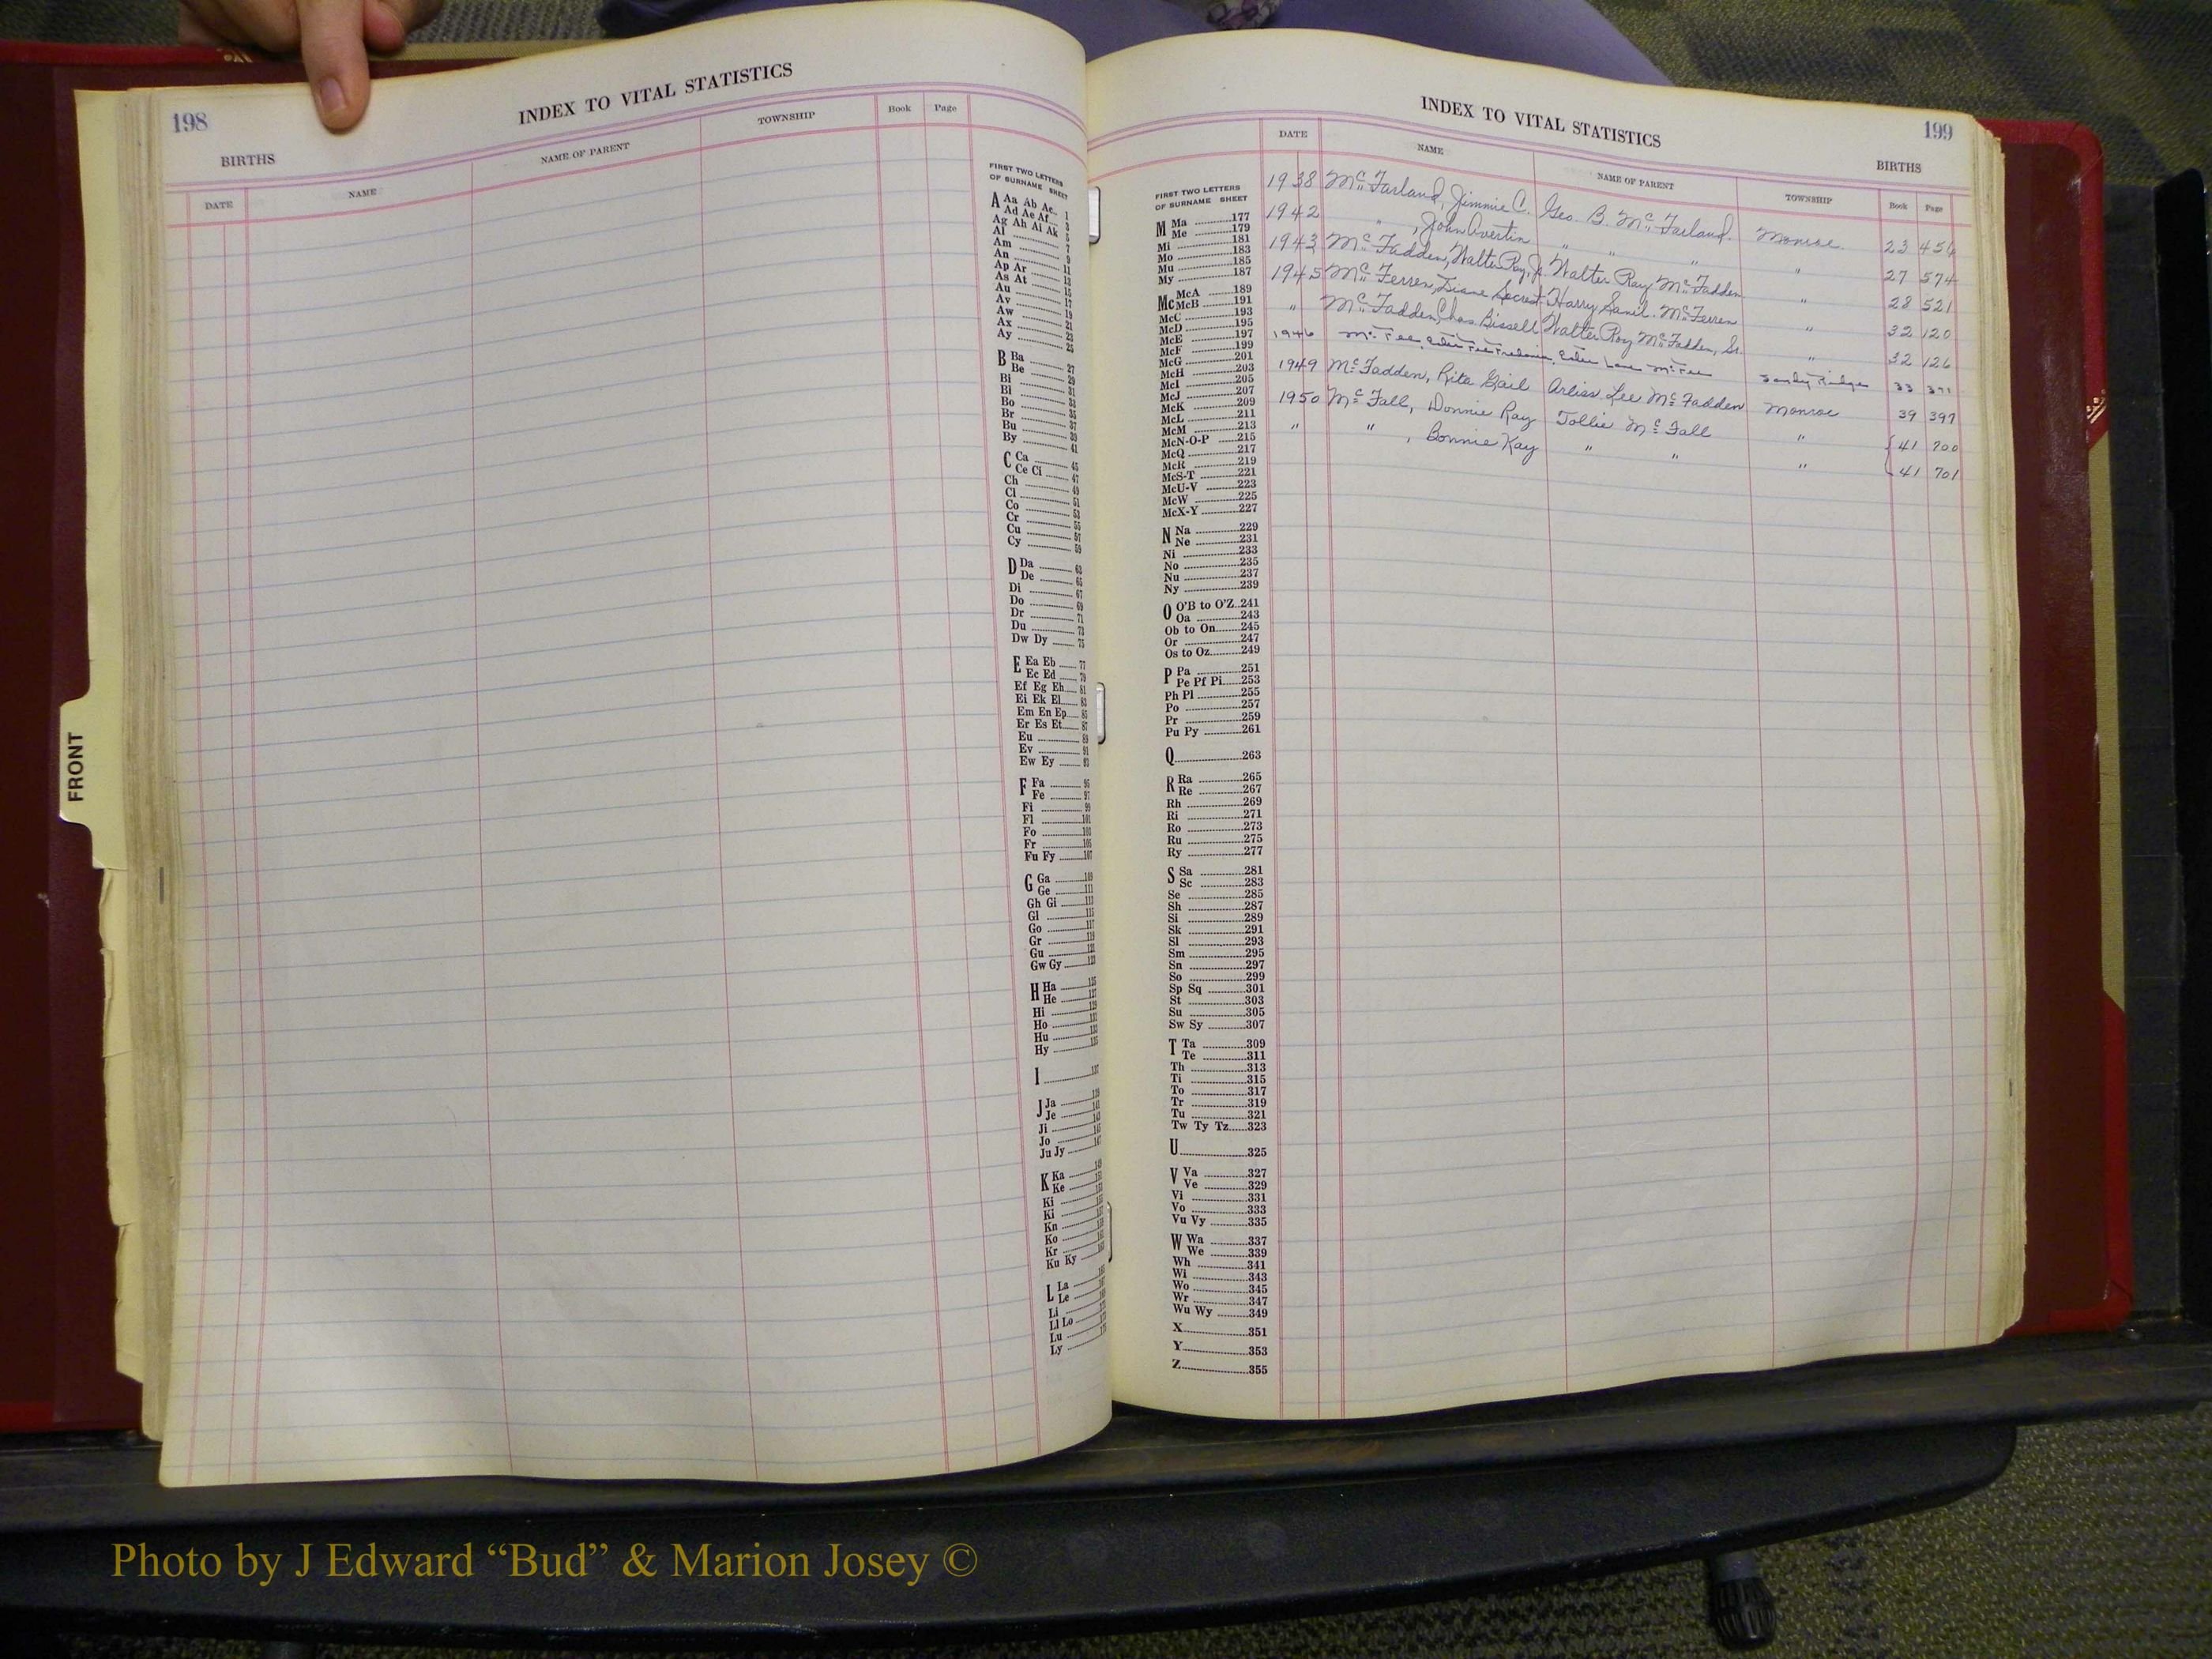 198
INDEX TO VITAL STATISTICS
BIRTHS
DATE NAME NAME OF PARENT TOWNSHIP Book Page
FIRST TWO LETTERS
OF SURNAME SHEET
A Aa Ab Ac 1
Ad Ae Af 3
Ag Ah Ai Ak 5
Al 7
Am 9
An 11
Ap Ar 13
As At 15
Au 17
Av 19
Aw 21
Ax 23
Ay 25
B Ba 27
Be 29
Bi 31
Bl 33
Bo 35
Br 37
Bu 39
By 41
C Ca 45
Ce Ci 47
Ch 49
Cl 51
Co 53
Cr 55
Cu 57
Cy 59
D Da 63
De 65
Di 67
Do 69
Dr 71
Du 73
Dw Dy 75
E Ea Eb 77
Ec Ed 79
Ef Eg Eh 81
Ei Ek El 83
Em En Ep 85
Er Es Et 87
Eu 89
Ev 91
Ew Ey 93
F Fa 95
Fe 97
Fi 99
Fl 101
Fo 103
Fr 105
Fu Fy 107
G Ga 109
Ge 111
Gh Gi 113
Gl 115
Go 117
Gr 119
Gu 121
Gw Gy 123
H Ha 125
He 127
Hi
Ho
Hu
Hy
I
J Ja
Je
Ji
Jo
Ju Jy
K Ka
Ke
Ki
Ki
Kn
Ko
Kr
Ku Ky
L La
Le
Li
Ll Lo
Lu
Ly
FRONT
INDEX TO VITAL STATISTICS
199
BIRTHS
DATE NAME NAME OF PARENT TOWNSHIP Book Page
1938 McFarland, Jimmie C. Geo. B. McFarland Monroe 23 456
1942 " , John Overtin " " " 27 574
1943 McFadden, Walter Roy, Jr Walter Ray McFadden " 28 521
1945 McFerren, Diane Secrest Harry McFerren " 32 120
" McFadden, Chas Bissell Walter Roy McFadden, Sr. " 32 126
1946 McFee, McFee Sandy Ridge 33 391
1949 McFadden, Rita Gail Arliss Lee McFadden Monroe 39 397
1950 McFall, Donnie Ray Tollie McFall " 41 700
" " , Bonnie Kay " " " 41 701
FIRST TWO LETTERS
OF SURNAME SHEET
M Ma 177
Me 179
Mi 181
Mo 183
Mu 185
My 187
Mc McA 189
McB 191
McC 193
McD 195
McE 197
McF 199
McG 201
McH 203
McI 205
McJ 207
McK 209
McL 211
McM 213
McN-O-P 215
McQ 217
McR 219
McS-T 221
McU-V 223
McW 225
McX-Y 227
N Na 229
Ne 231
Ni 233
No 235
Nu 237
Ny 239
O O'B to O'Z 241
Oa 243
Ob to On 245
Or 247
Os to Oz 249
P Pa 251
Pe Pf Pi 253
Ph Pl 255
Po 257
Pr 259
Pu Py 261
Q 263
R Ra 265
Re 267
Rh 269
Ri 271
Ro 273
Ru 275
Ry 277
S Sa 281
Sc 283
Se 285
Sh 287
Si 289
Sk 291
Sl 293
Sm 295
Sn 297
So 299
Sp Sq 301
St 303
Su 305
Sw Sy 307
T Ta 309
Te 311
Th 313
Ti 315
To 317
Tr 319
Tu 321
Tw Ty Tz 323
U 325
V Va 327
Ve 329
Vi 331
Vo 333
Vu Vy 335
W Wa 337
We 339
Wh 341
Wi 343
Wo 345
Wr 347
Wu Wy 349
X 351
Y 353
Z 355
Photo by J Edward “Bud” & Marion Josey ©